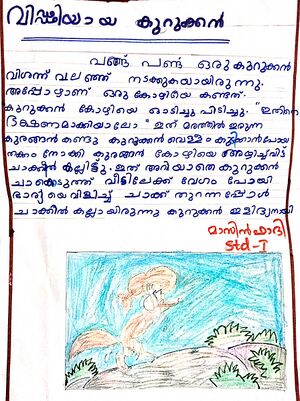 വിഷ്ഠിയായ കുറുക്കൻ
പണ്ട് പണ്ട് ഒരു കുറുക്കൻ
വിശന്ന് വലഞ്ഞ് നടക്കുകയായിരുന്നു.
അപ്പോഴാണ് ഒരു കോഴിയെ കണ്ടത്
കുറുക്കൻ കോഴിയെ ഓടിച്ചു പിടിച്ചു. "ഇതിനെ
ഭക്ഷണമാക്കിയാലോ" ഇത് മരത്തിൽ ഇരുന്ന
കുരങ്ങൻ കണ്ടു കുറുക്കൻ വെള്ളം കുടിക്കാൻപോയ
തക്കം നോക്കി കുരങ്ങൻ കോഴിയെ അഴിച്ചുവിട്ട്
ചാക്കിൽ കല്ലിട്ടു. ഇത് അറിയാതെ കുറുക്കൻ
ചാക്കെടുത്ത് വീട്ടിലേക്ക് വേഗം പോയി
ഭാര്യയെവിളിച്ച് ചാക്ക് തുറന്നപ്പോൾ
ചാക്കിൽ കല്ലായിരുന്നു കുറുക്കൻ ഇളിഭ്യനായി
മാസിൻഹാദി
Std-I